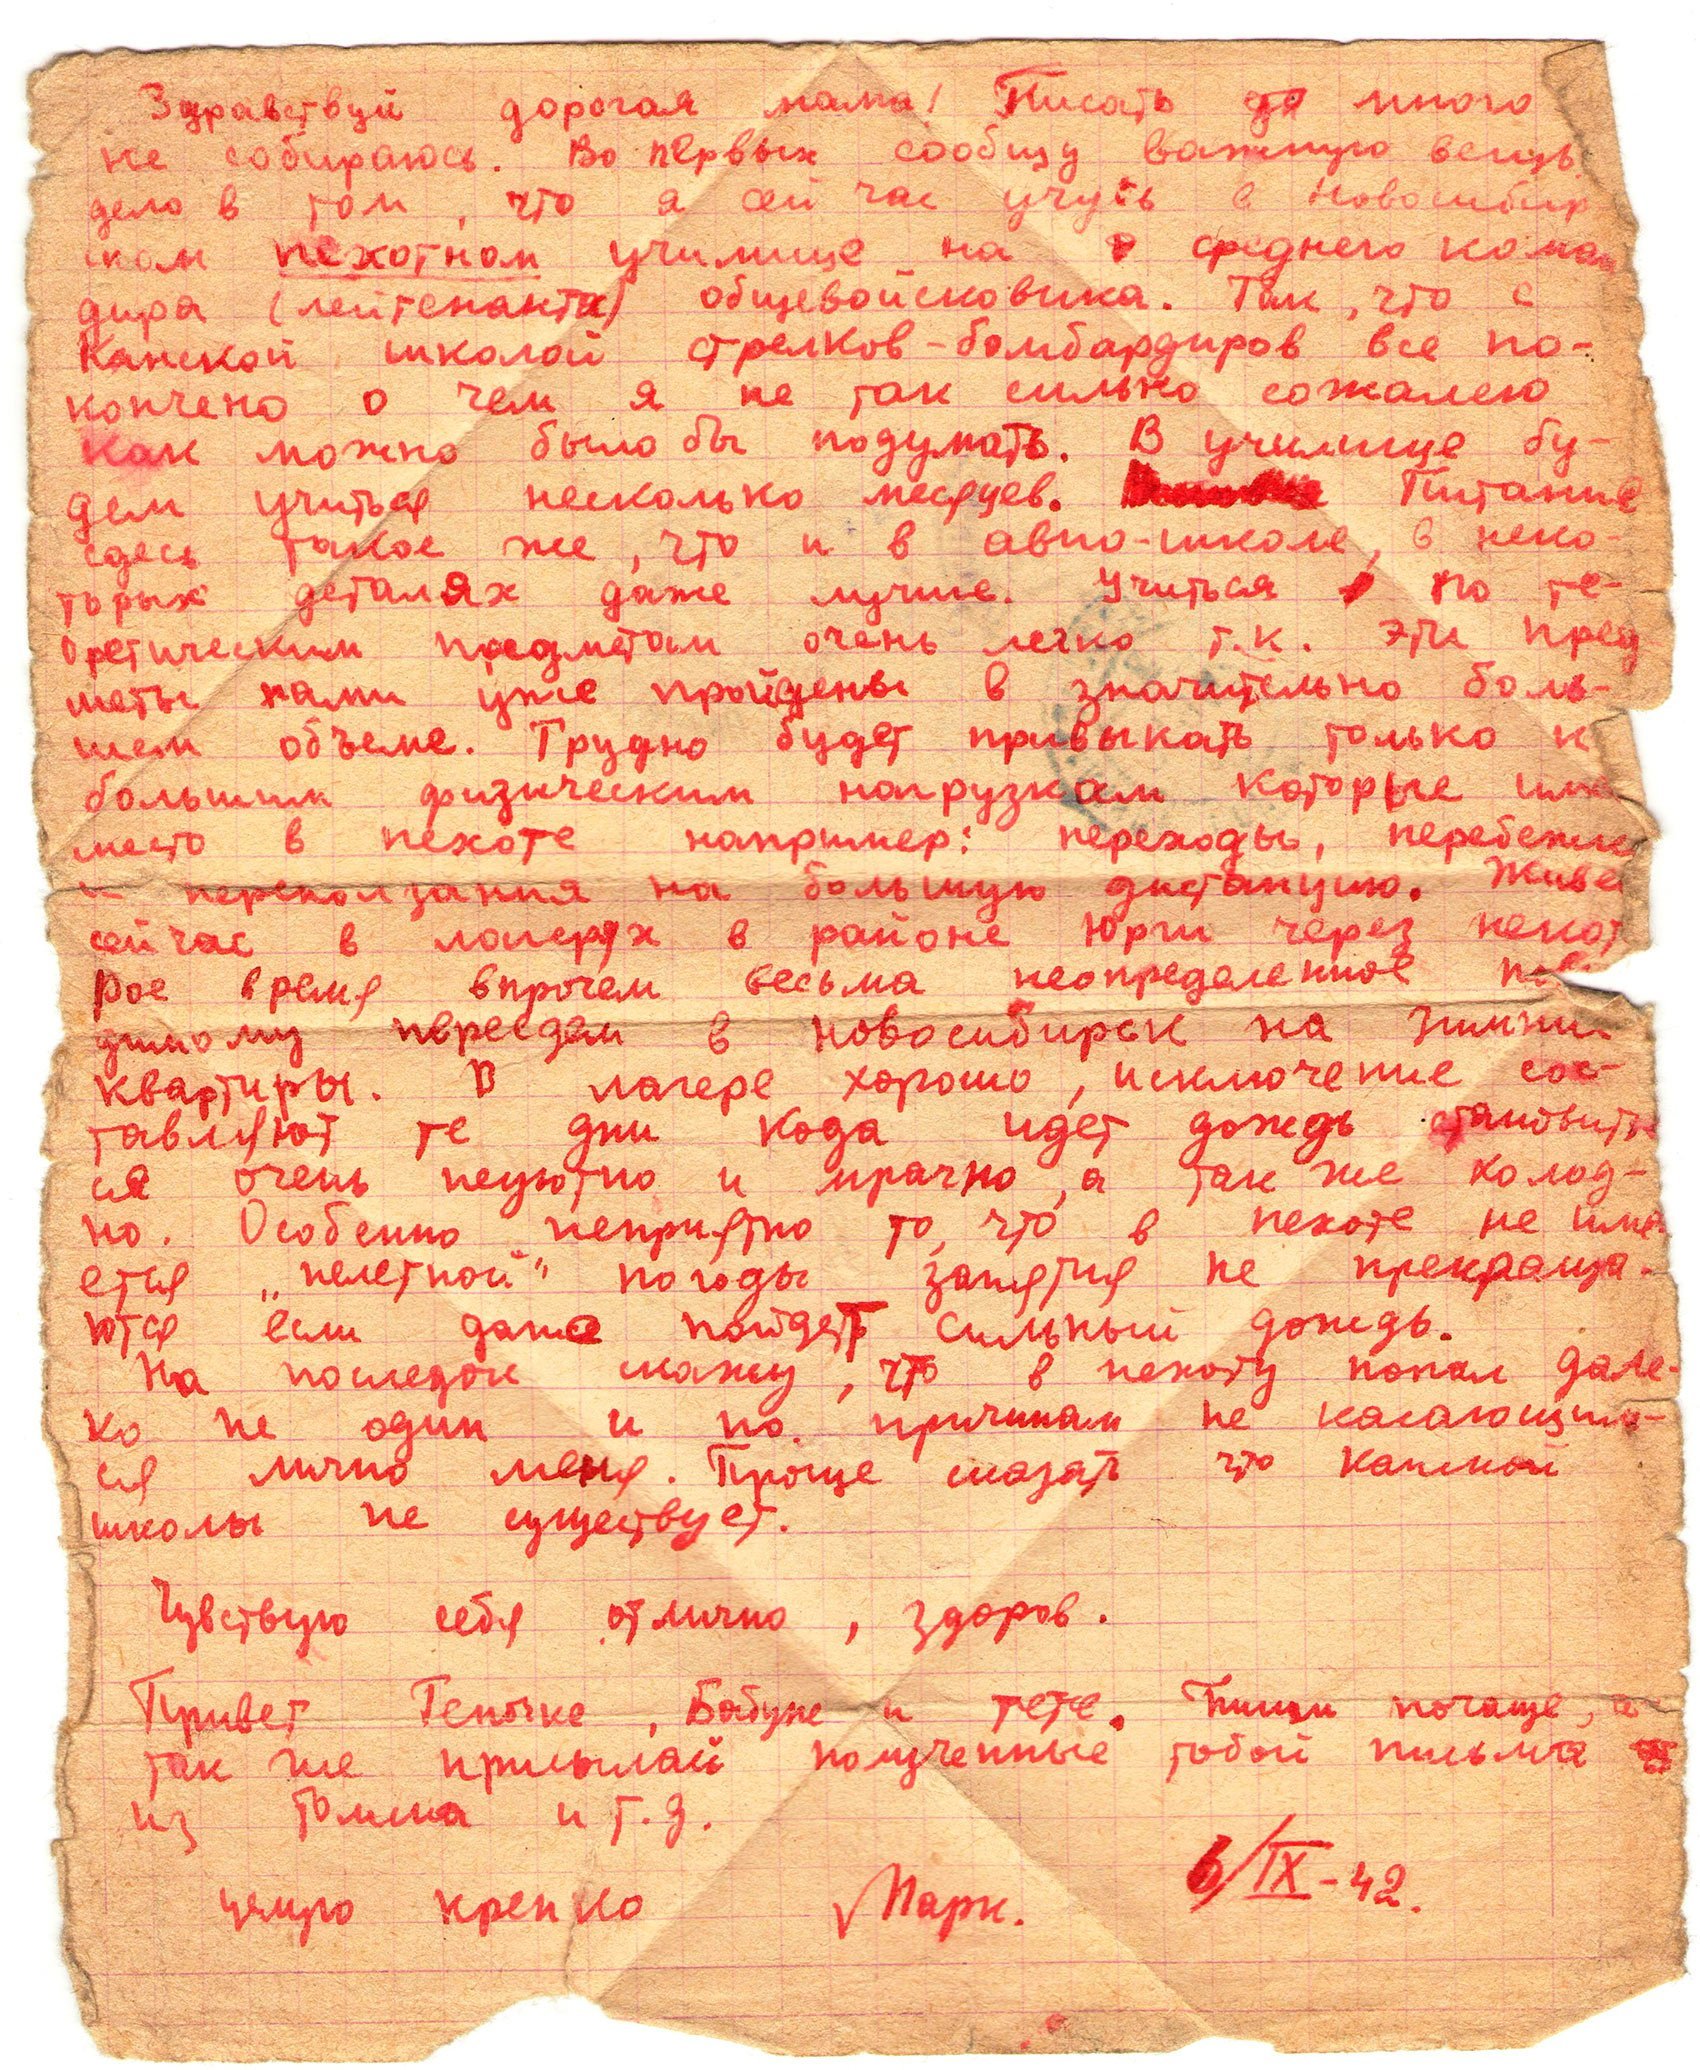 Здравствуй дорогая мама! Писать много
не собираюсь. Во первых сообщу важную вещь
дело в том, что я сейчас учусь в Новосибир
ском пехотном училище на среднего коман
дира (лейтенанта) общевойсковика. Так, что с
Канской школой стрелков-бомбардиров все по-
кончено о чем я не так сильно сожалею
как можно было бы подумать. В училище бу-
дем учиться несколько месяцев. Питание
здесь такое же, что и в авио-школе, в неко-
торых деталях даже лучше. Учиться по те-
оретическим предметам очень легко т.к. эти пред
меты нами уже пройдены в значительно боль-
шем объеме. Трудно будет привыкать только к
большим физическим нагрузкам которые име
место в пехоте например: переходы, перебежки
и переползания на большую дистанцию. Живе
сейчас в лагерях в районе Юрги через некот
рое время впрочем весьма неопределенное
димому переедем в Новосибирск на зимние
квартиры. В лагере хорошо, исключение сос-
тавляют те дни кода идет дождь становить
ся очень неуютно и мрачно, а так же холод-
но. Особенно неприятно то, что в пехоте не име
ется „нелетной" погоды занятия не прекраща-
ются если даже пойдет сильный дождь.
На последок скажу, что в пехоту попал дале-
ко не один и по причинам не касающим-
ся лично меня. Проще сказать что Канской
школы не существует.
Чувствую себя отлично, здоров.
Привет Геночке, Бабуне и тете. Пиши почаще, а
так же присылай полученные тобой письма
из Томска и т.д.
целую крепко Марк. 6/IX-42.